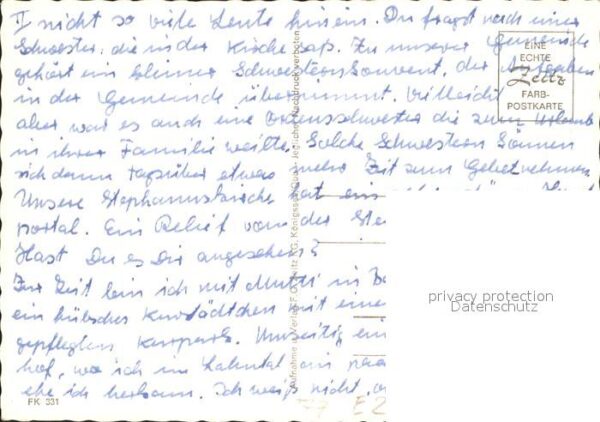 I nicht so viele Leute hinein. Du fragst nach einer
Schwester, die in der Kirche saß. Zu unserer Gemeinde
gehört ein kleiner Schwesternkonvent, der Aufgaben
in der Gemeinde übernimmt. Vielleicht
aber war es auch eine Ordensschwester die zum Urlaub
in ihrer Familie weilte. Solche Schwestern können
sich dann tagsüber etwas mehr Zeit zum Gebet nehmen.
Unsere Stephanuskirche hat ein
portal. Ein Relief von der Ste
Hast Du es Dir angesehen?
Zur Zeit bin ich mit Mutti in B
ein hübsches Kurstädtchen mit eine
gepflegten Kurpark. Unzeitig ein
hof, wo ich im Lahntal ein paa
ehe ich herkam. Ich weiß nicht,
EINE
ECHTE
Zeitz
FARB-
POSTKARTE
privacy protection
Datenschutz
FK 331